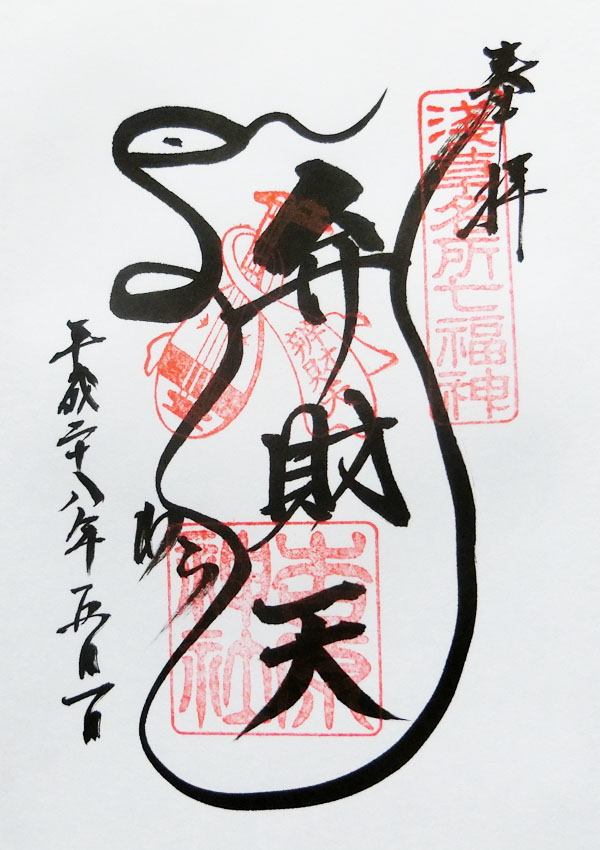 奉拝
淺草名所七福神
弁財天
辨財天
吉原神社
平成二十八年五月一日